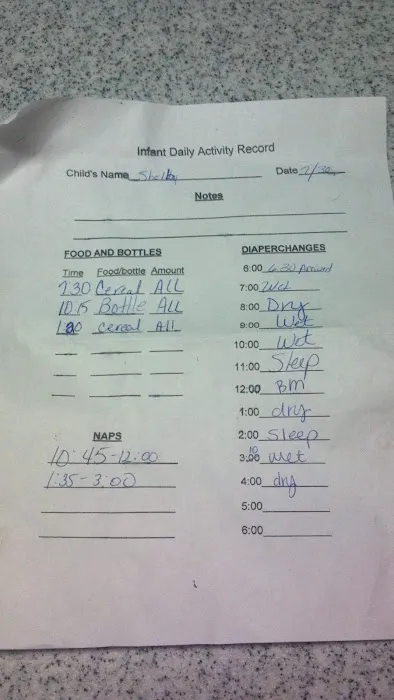 Infant Daily Activity Record
Child's Name Shelby Date 7/30
Notes
FOOD AND BOTTLES
Time Food/bottle Amount
7:30 Cereal ALL
10:15 Bottle ALL
cereal All
NAPS
10:45-12:00
1:35-3:00
DIAPERCHANGES
6:00 6:30 Arrived
7:00 Wet
8:00 Dry
9:00 Wet
10:00 Wet
11:00 Sleep
12:00 BM
1:00 dry
2:00 Sleep
3:00 10 wet
4:00 dry
5:00
6:00